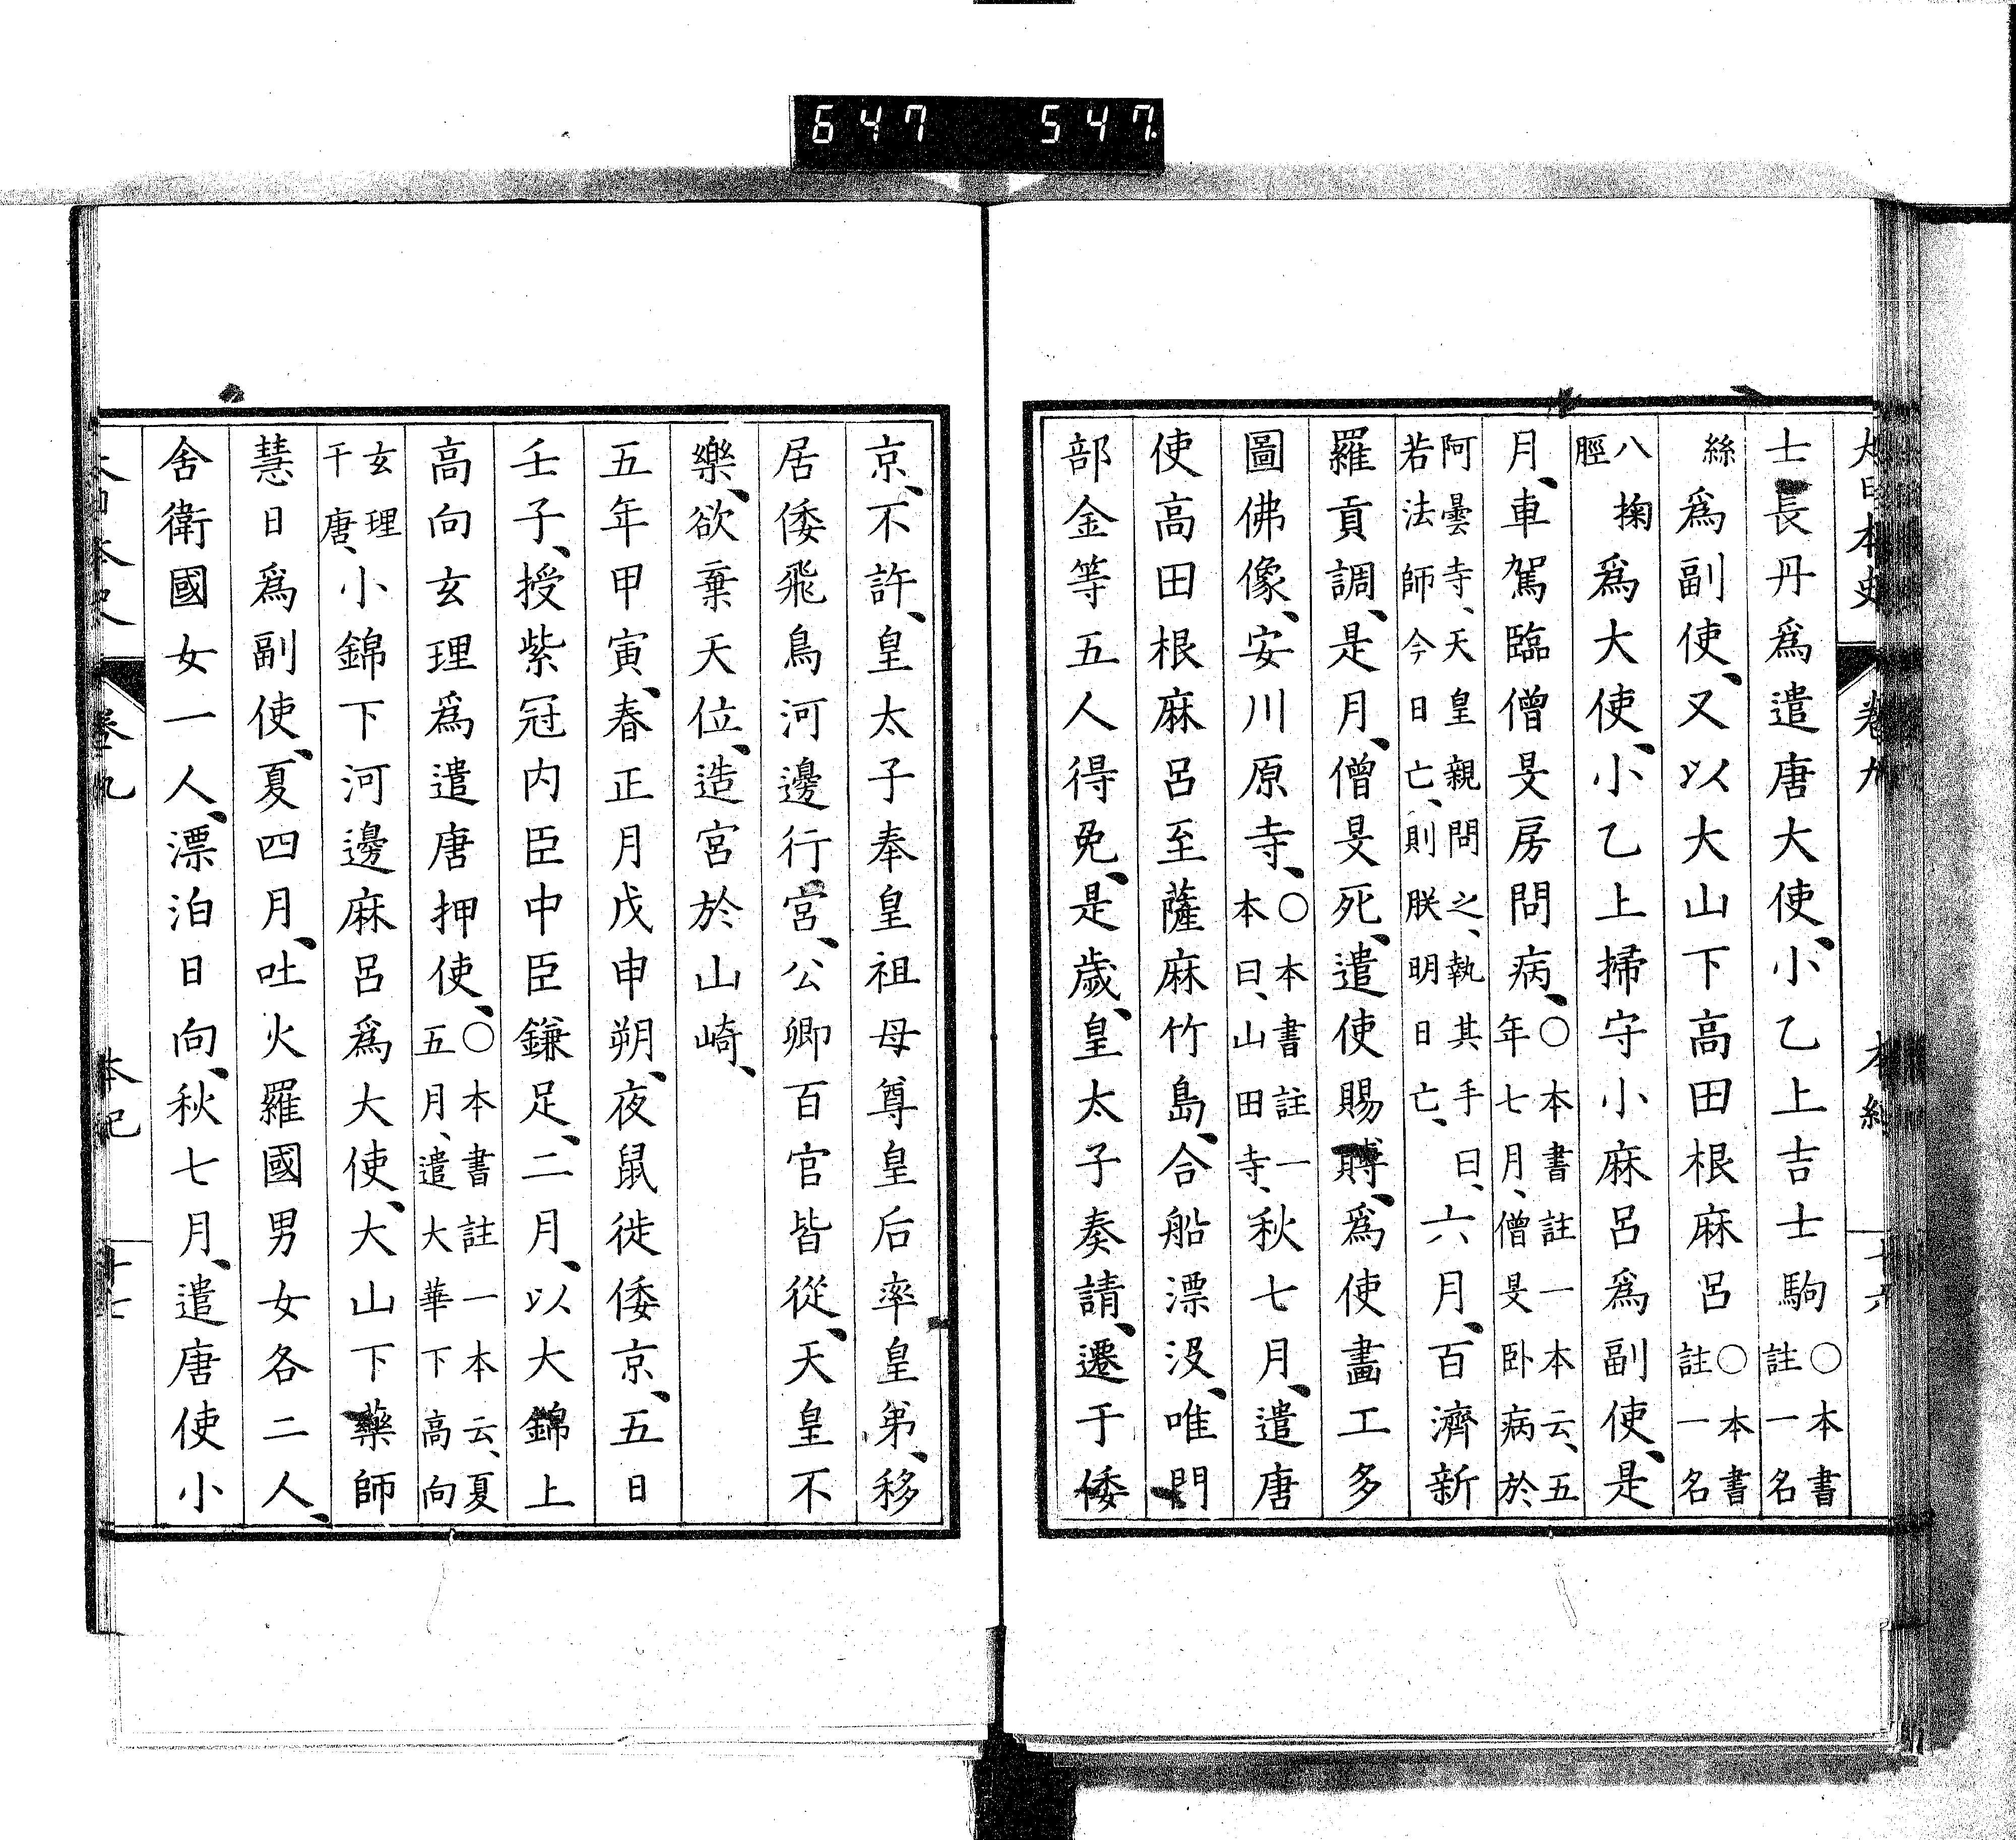 647 547
大日本史 卷九 本紀 十六
士長丹爲遣唐大使、小乙上吉士駒○本書註一名
絲爲副使、又以大山下高田根麻呂○本書註一名
八掬脛爲大使、小乙上掃守小麻呂爲副使、是
月、車駕臨僧旻房問病、○本書註一本云、五年七月、僧旻卧病於
阿曇寺、天皇親問之、執其手曰、若法師今日亡、則朕明日亡、六月、百濟新
羅貢調、是月、僧旻死、遣使賜賻、爲使畫工多
圖佛像、安川原寺、○本書註一本曰、山田寺、秋七月、遣唐
使高田根麻呂至薩麻竹島、合船漂沒、唯門
部金等五人得免、是歲、皇太子奏請、遷于倭
京、不許、皇太子奉皇祖母尊皇后率皇弟、移
居倭飛鳥河邊行宮、公卿百官皆從、天皇不
樂、欲棄天位、造宮於山崎、
五年甲寅、春正月戊申朔、夜鼠徙倭京、五日
壬子、授紫冠内臣中臣鎌足、二月、以大錦上
高向玄理爲遣唐押使、○本書註一本云、夏五月、遣大華下高向
玄理于唐、小錦下河邊麻呂爲大使、大山下藥師
慧日爲副使、夏四月、吐火羅國男女各二人、
舍衛國女一人、漂泊日向、秋七月、遣唐使小
大日本史 卷九 本紀 十七